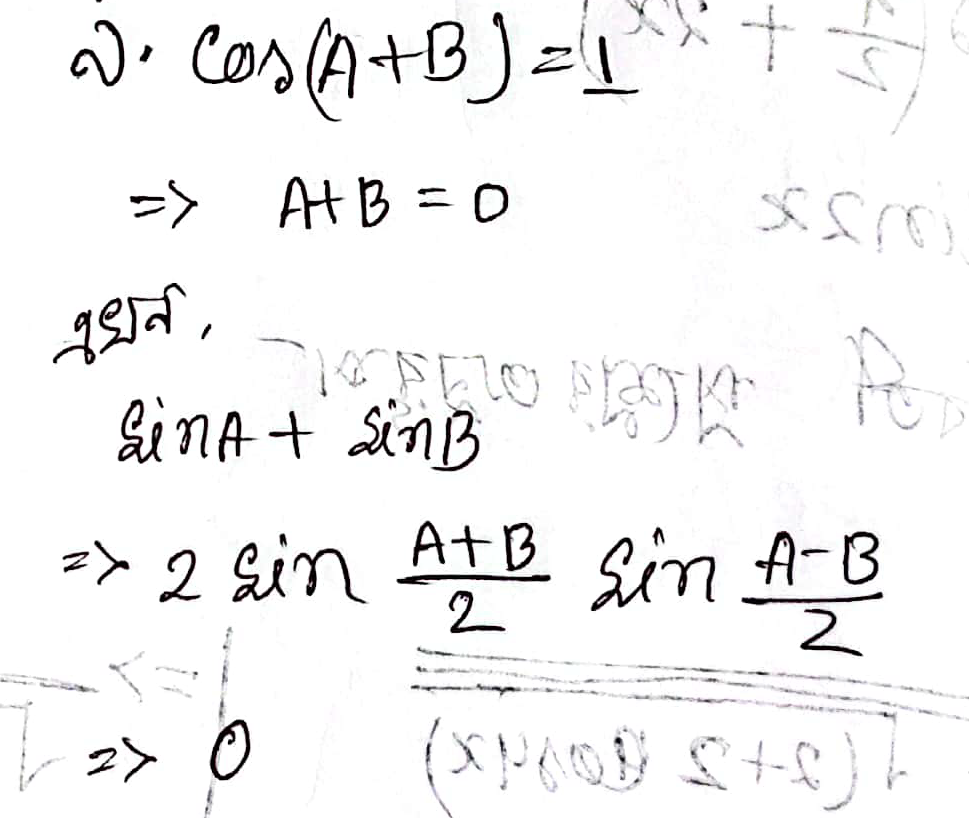 ৯. Cos(A+B) = 1
=> A+B = 0
এখন,
SinA + SinB
=> 2 Sin \frac{A+B}{2} Sin \frac{A-B}{2}
=> 0